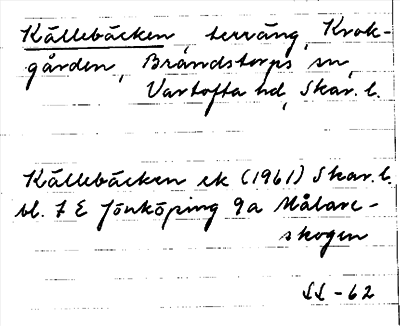 Källebäcken, terräng, Krok-
gården, Brandstorps sn,
Vartofta hd, Skar. l.
Källebäcken ek (1961) Skar. l.
bl. 7 E Jönköping 9a Målare-
skogen
-62